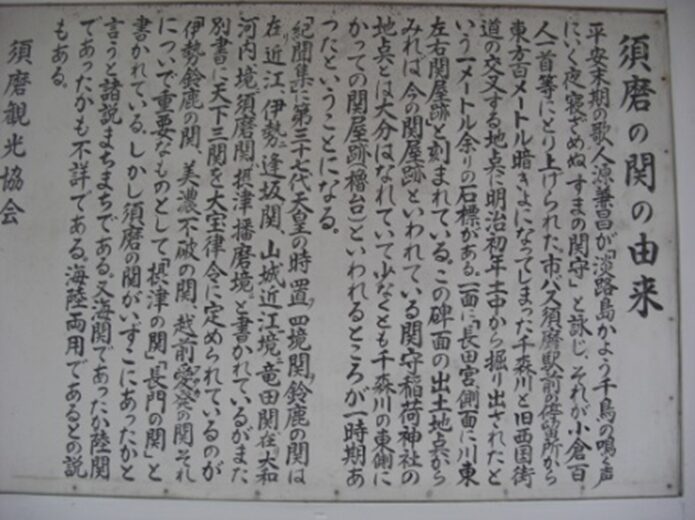 須磨の関の由来
平安末期の歌人源兼昌が「淡路島かよう千鳥の鳴く声
にいく夜寝ざめぬすまの関守」と詠じ、それが小倉百
人一首等にとり上げられた。市バス須磨駅前の停留所から
東方百メートル暗きょになってしまった千森川と旧西国街
道の交叉する地点に明治初年土中から掘り出されたと
いう一メートル余りの石標がある。一面に「長田宮」側面に「川東
左右関屋跡」と刻まれている。この碑面の出土地点から
みれば、今の関屋跡といわれている関守稲荷神社の
地点とは大分はなれていて少なくとも千森川の東側に
かっての関屋跡(櫓台)といわれるところが一時期あ
ったということになる。
「紀聞集」に第三十七代天皇の時、置ク四境関ヲ鈴鹿の関は
在リ近江、伊勢ニ逢坂関、山城近江境ニ竜田関在大和
河内境ニ須磨関摂津播磨境と書かれているがまた
別書に天下三関を大宝律令に定められているのが
伊勢鈴鹿の関、美濃不破の関、越前愛発の関、それ
についで重要なものとして「摂津の関」「長門の関」と
書かれている。しかし須磨の関がいずこにあったかと
言うと諸説まちまちである。又海関であったか陸関
であったかも不詳である。海陸両用であるとの説
もある。
須磨観光協会